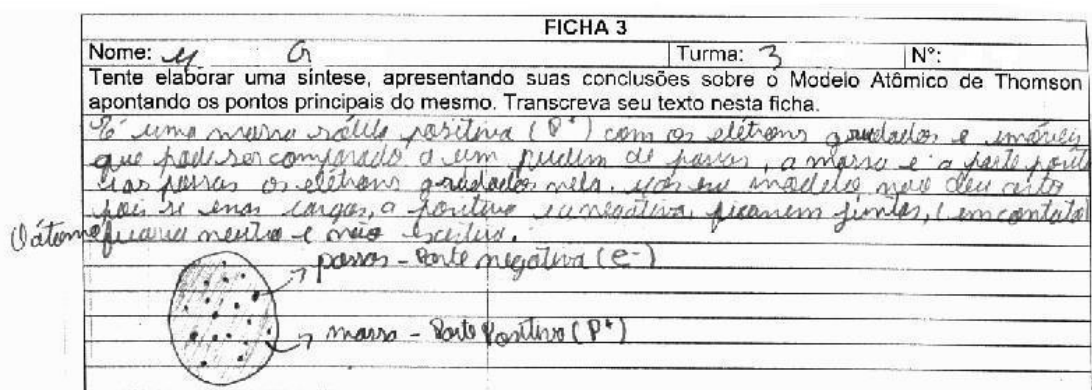 FICHA 3
Nome: M G Turma: 3 Nº:
Tente elaborar uma síntese, apresentando suas conclusões sobre o Modelo Atômico de Thomson
apontando os pontos principais do mesmo. Transcreva seu texto nesta ficha.
É uma massa positiva (P+) com os elétrons grudados e imóveis
que pode ser comparado a um pudim de passas, a massa é a parte
as passas os elétrons grudados nela. modelo não deu certo
pois se cargas, a positiva e a negativa, ficarem juntas, em contato
O átomo ficaria neutro e não
passas - Parte negativa (e-)
massa - Parte Positiva (P+)